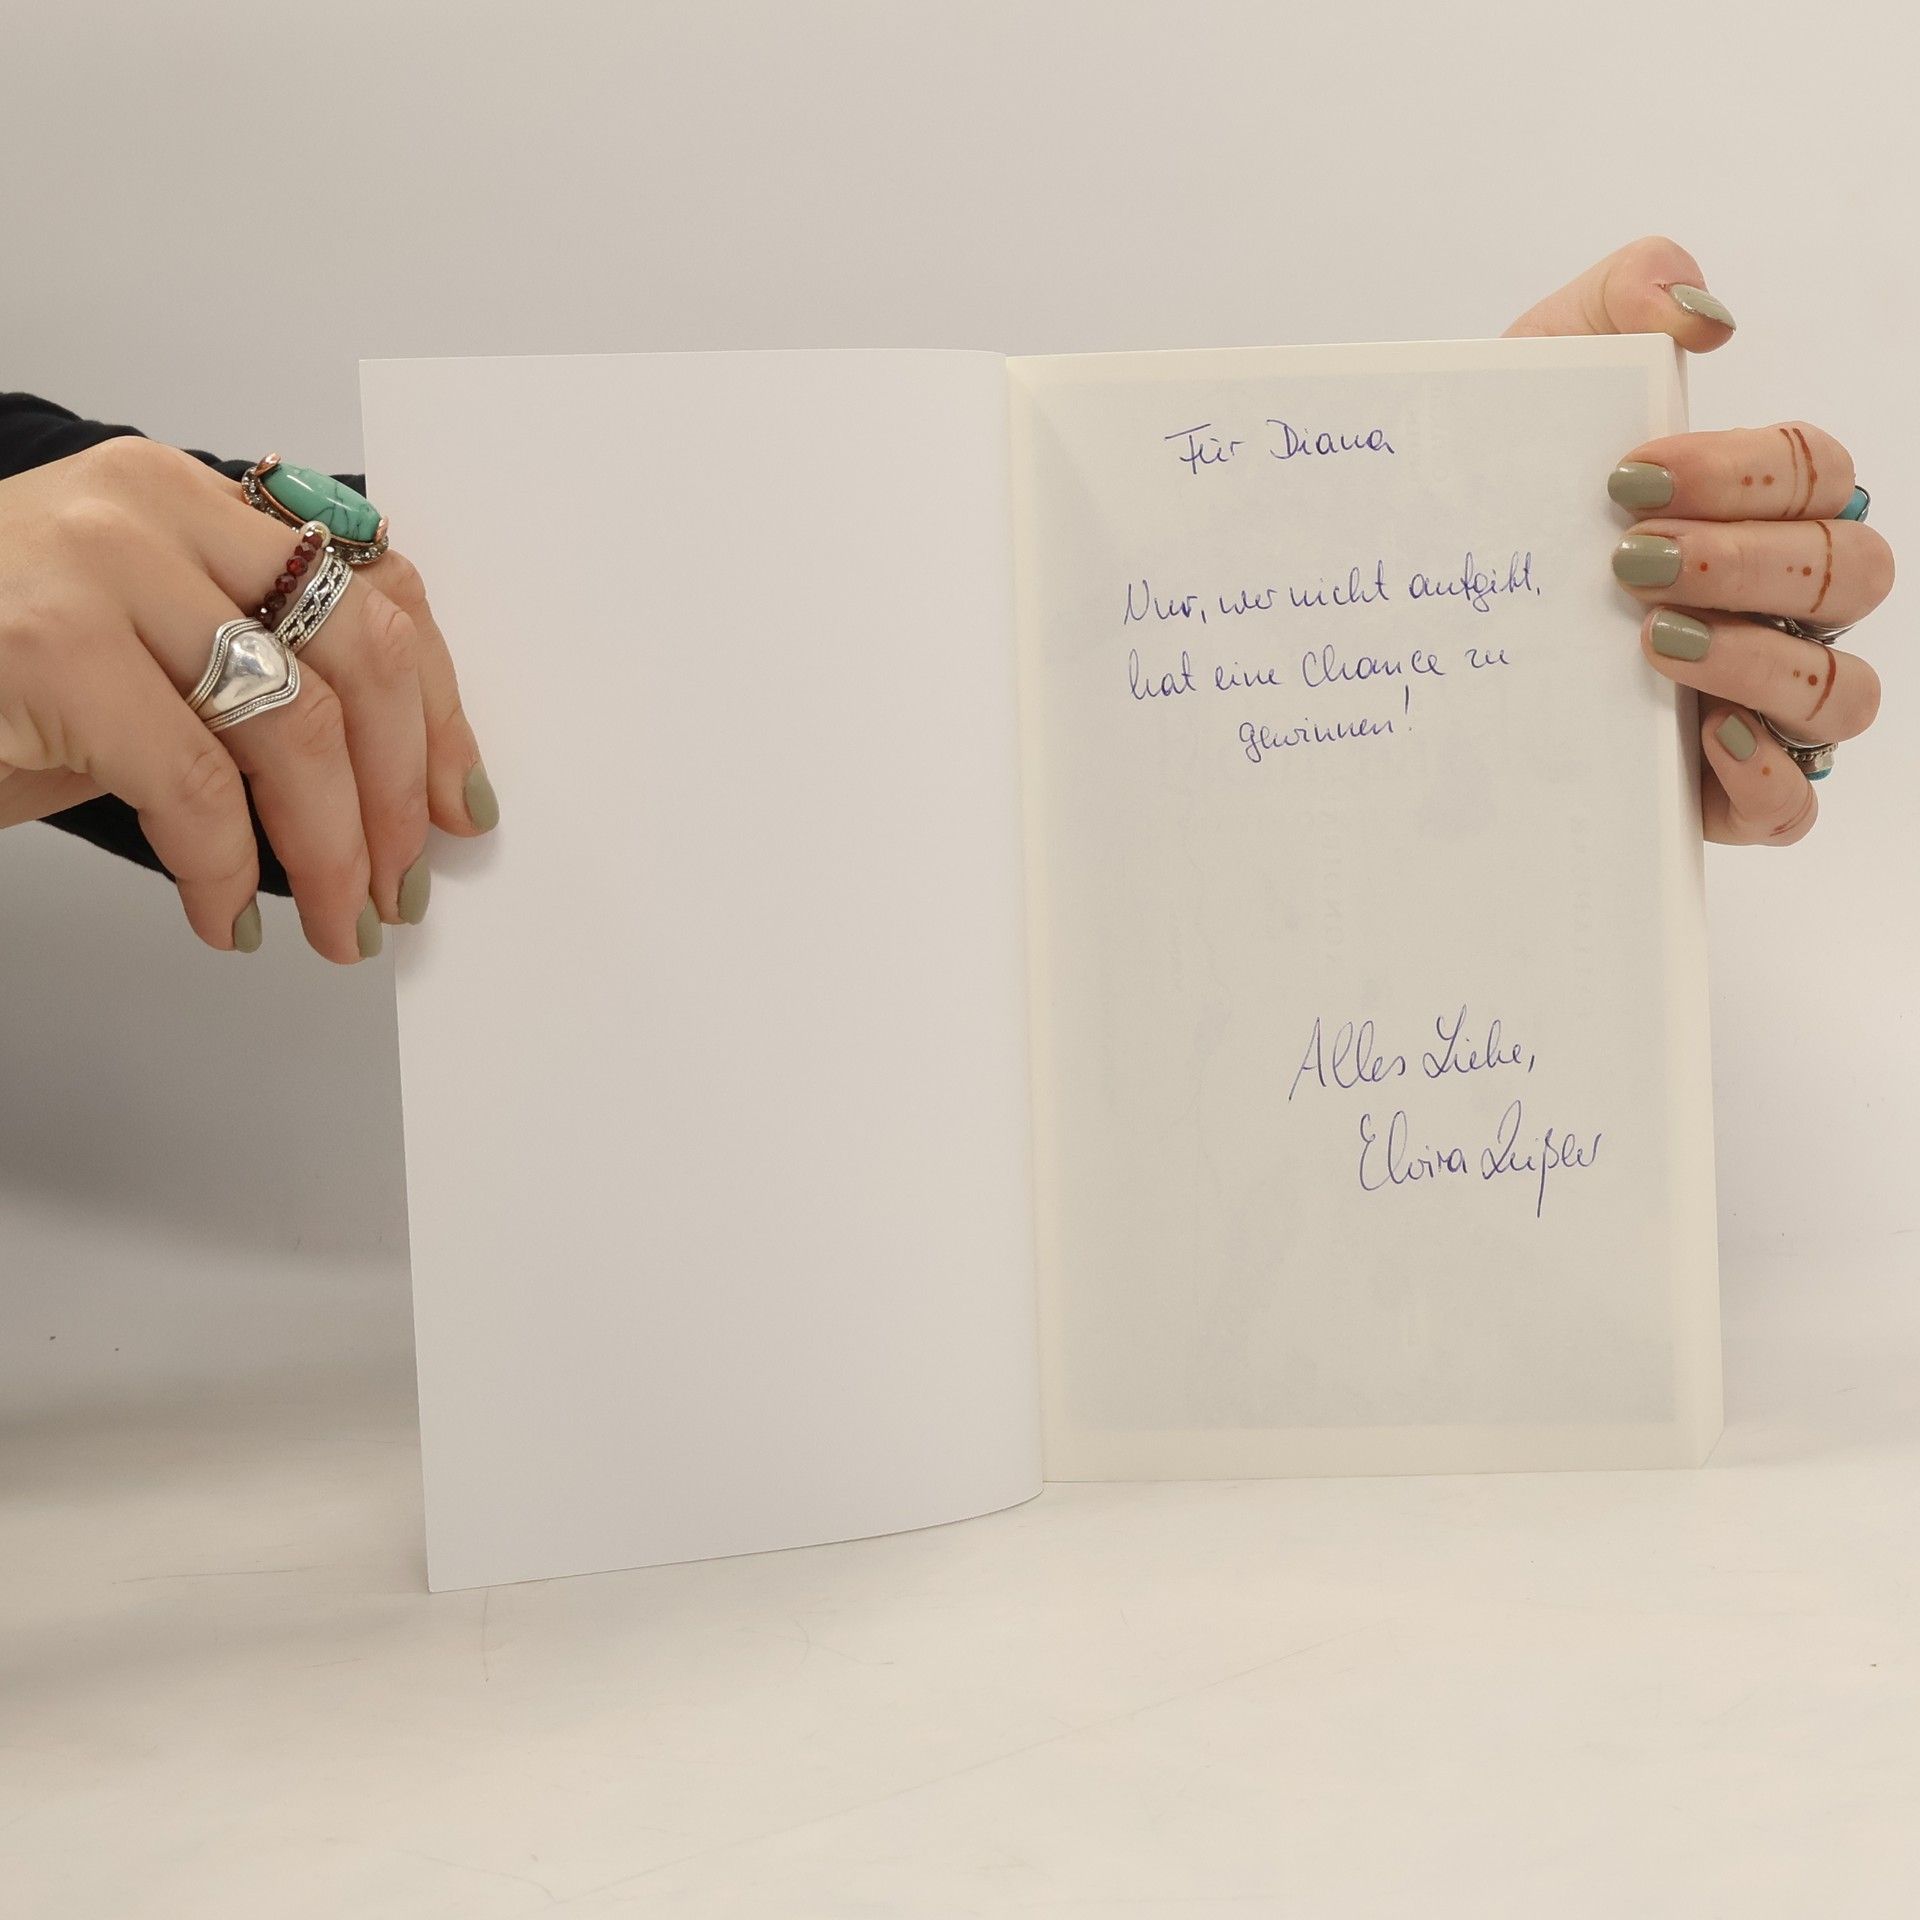 Für Diana
Nur, wer nicht aufgibt,
hat eine Chance zu
gewinnen!
Alles Liebe,
Elvira Zeißler